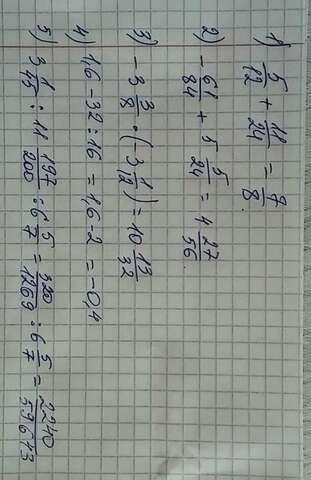 1) 5/12 + 11/24 = 7/8.
2) -61/84 + 5 5/24 = 4 27/56
3) -3 3/8 · (-3 1/12) = 10 13/32
4) 1,6 - 32 : 16 = 1,6 - 2 = -0,4
5) 3 1/45 : 11 197/200 : 6 5/7 = 320/1269 : 6 5/7 = 2240/59643